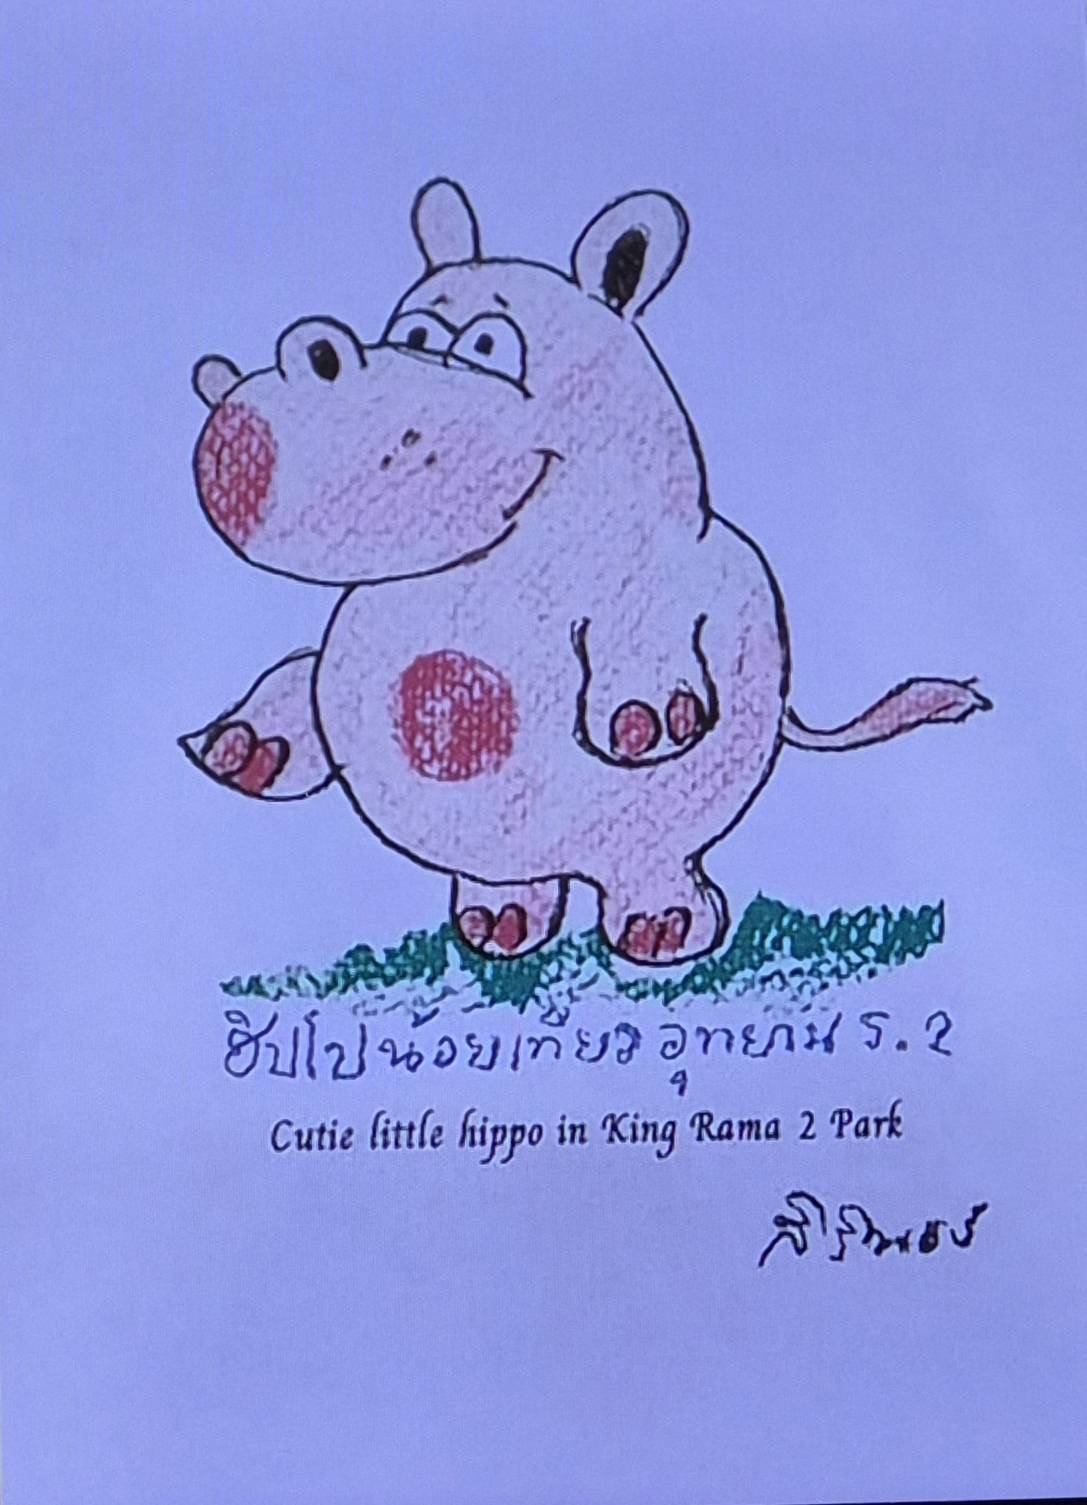 ฮิปโปน้อยเที่ยวอุทยาน ร.2
Cutie little hippo in King Rama 2 Park
สิรินธร